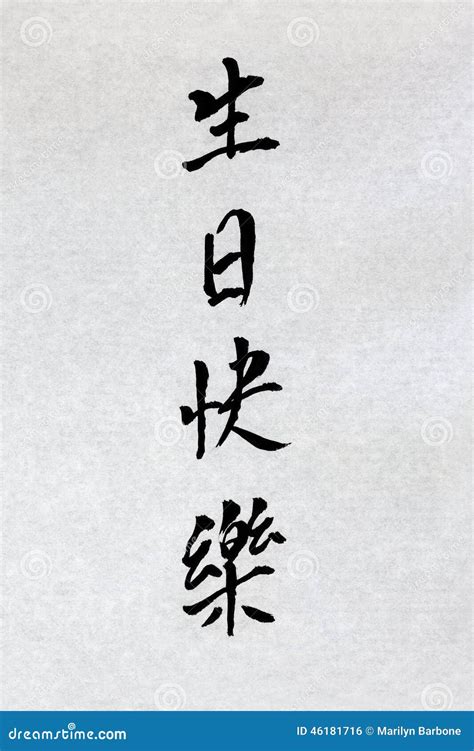 生日快樂
dreamstime.com
ID 46181716 © Marilyn Barbone